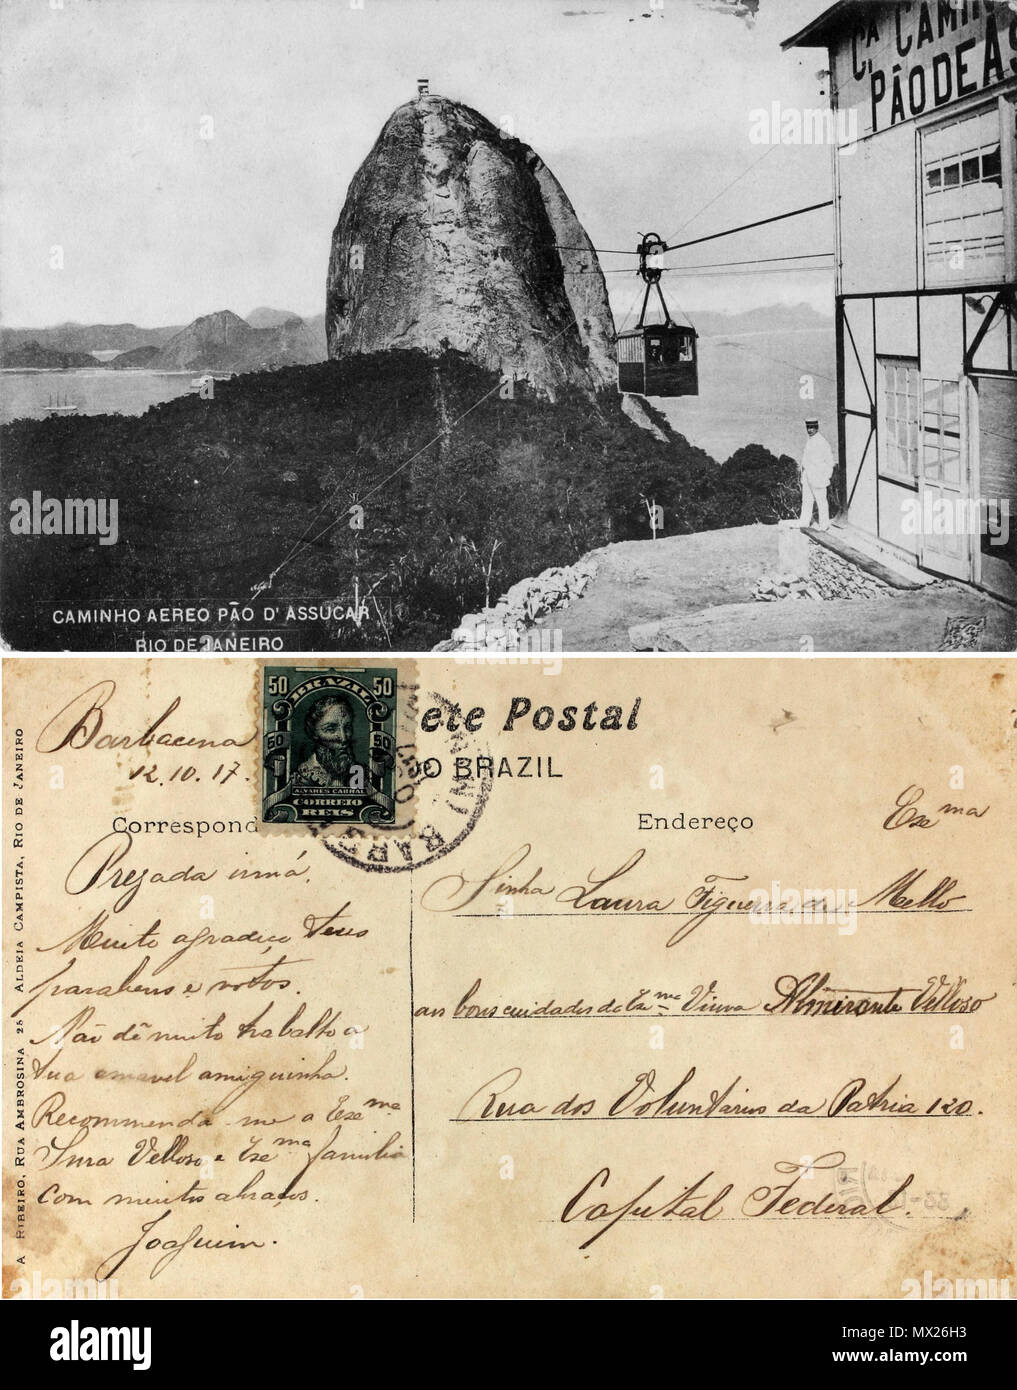 Cª CAMIN
PÃO DE AS
CAMINHO AEREO PÃO D' ASSUCAR
RIO DE JANEIRO
A RIBEIRO, RUA AMBROSINA 25 ALDEIA CAMPISTA, RIO DE JANEIRO
Barbacena
12.10.17.
50 BRAZIL 50
50 50
ALVARES CABRAL
CORREIO
REIS
ete Postal
DO BRAZIL
Correspond
Endereço
Prezada irmá.
Muito agradeço teus
parabens e votos.
Não dê muito trabalho a
tua amavel amiguinha.
Recommenda-me a Exema
Snra Velloso e Exema familia
com muitos abraços.
Joaquim.
Exema
Sinha Laura Figueira de Mello
aos bons cuidados da Exma Viuva Almirante Velloso
Rua dos Voluntarios da Patria 120.
Capital Federal.
alamy
Image ID: MX26H3
www.alamy.com